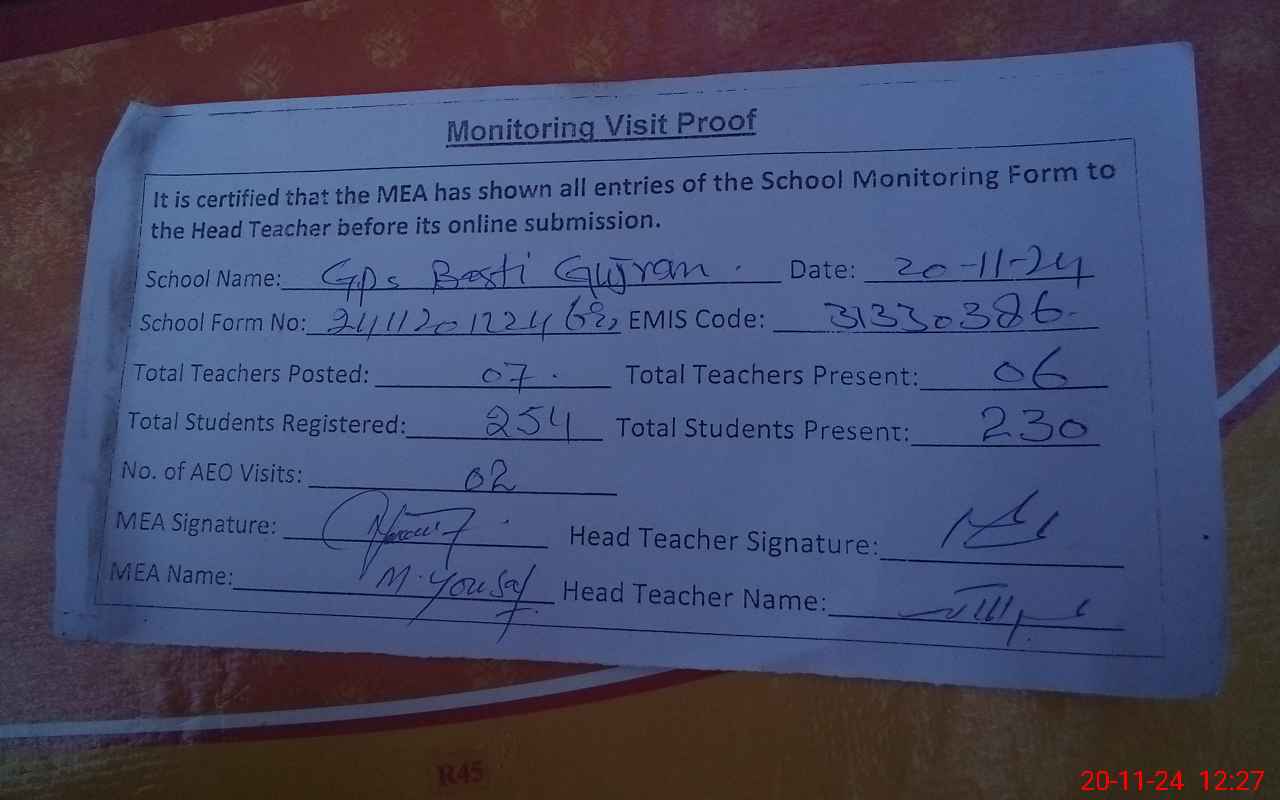 Monitoring Visit Proof
It is certified that the MEA has shown all entries of the School Monitoring Form to
the Head Teacher before its online submission.
School Name: GPs Basti Gujran. Date: 20-11-24
School Form No: EMIS Code: 31330386
Total Teachers Posted: 07 Total Teachers Present: 06
Total Students Registered: 254 Total Students Present: 230
No. of AEO Visits: 02
MEA Signature: Head Teacher Signature:
MEA Name: M. Yousaf Head Teacher Name:
R45
20-11-24 12:27